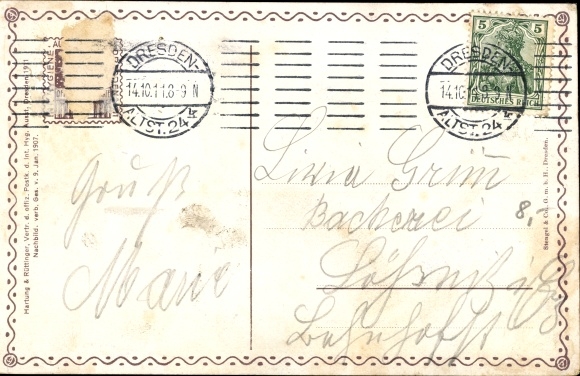 DRESDEN-
14.10.11.8-9 N
ALTST. 24 k
DRESDEN-
14.10.
N
ALTST. 24 k
5 5
DEUTSCHES REICH
Gruß
Marie
Grim
Bäckerei
Bahnhofst
8.-
Hartung & Rüttinger, Vertr. d. offiz. Postk. d. Int. Hyg. Ausst. Dresden 1911
Nachbild. verb. Ges. v. 9. Jan. 1907.
Stengel & Co., G. m. b. H., Dresden.